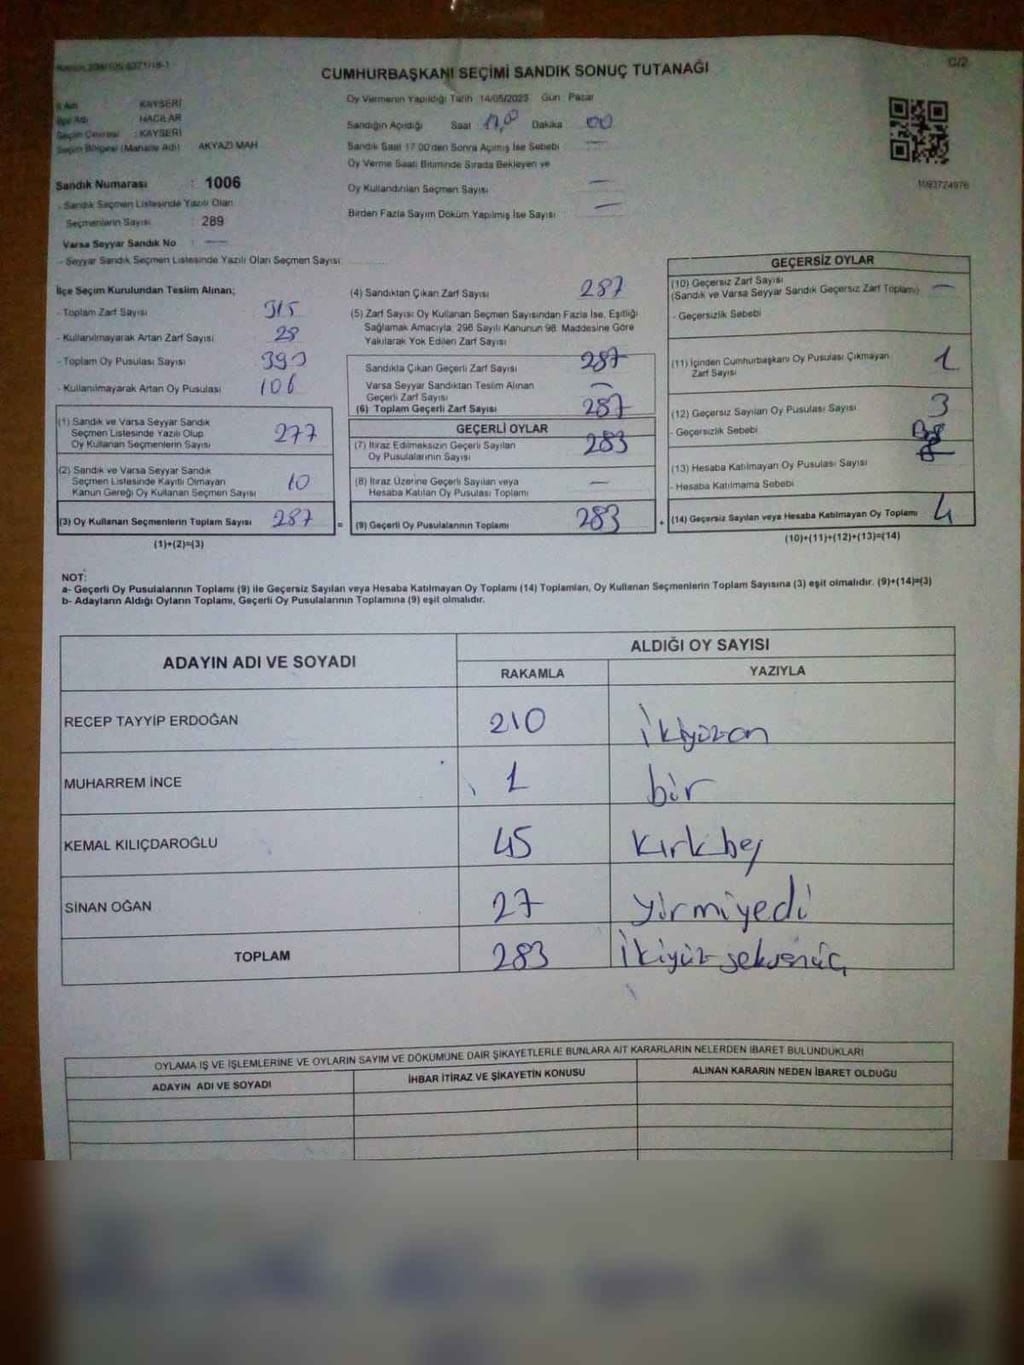 CUMHURBAŞKANI SEÇİMİ SANDIK SONUÇ TUTANAĞI
C/2
İl Adı KAYSERİ
İlçe Adı HACILAR
Seçim Çevresi : KAYSERİ
Seçim Bölgesi (Mahalle Adı) AKYAZI MAH
Sandık Numarası : 1006
- Sandık Seçmen Listesinde Yazılı Olan
Seçmenlerin Sayısı : 289
Varsa Seyyar Sandık No : —
- Seyyar Sandık Seçmen Listesinde Yazılı Olan Seçmen Sayısı
Oy Vermenin Yapıldığı Tarih 14/05/2023 Gün Pazar
Sandığın Açıldığı Saat 17,00 Dakika 00
Sandık Saat 17:00'den Sonra Açılmış İse Sebebi —
Oy Verme Saati Bitiminde Sırada Bekleyen ve
Oy Kullandırılan Seçmen Sayısı —
Birden Fazla Sayım Döküm Yapılmış İse Sayısı —
1093724976
İlçe Seçim Kurulundan Teslim Alınan;
- Toplam Zarf Sayısı 315
- Kullanılmayarak Artan Zarf Sayısı 28
- Toplam Oy Pusulası Sayısı
- Kullanılmayarak Artan Oy Pusulası 106
(1) Sandık ve Varsa Seyyar Sandık
Seçmen Listesinde Yazılı Olup
Oy Kullanan Seçmenlerin Sayısı 277
(2) Sandık ve Varsa Seyyar Sandık
Seçmen Listesinde Kayıtlı Olmayan
Kanun Gereği Oy Kullanan Seçmen Sayısı 10
(3) Oy Kullanan Seçmenlerin Toplam Sayısı 287
(1)+(2)=(3)
(4) Sandıktan Çıkan Zarf Sayısı 287
(5) Zarf Sayısı Oy Kullanan Seçmen Sayısından Fazla İse, Eşitliği
Sağlamak Amacıyla, 298 Sayılı Kanunun 98. Maddesine Göre
Yakılarak Yok Edilen Zarf Sayısı
Sandıkta Çıkan Geçerli Zarf Sayısı 287
Varsa Seyyar Sandıktan Teslim Alınan
Geçerli Zarf Sayısı —
(6) Toplam Geçerli Zarf Sayısı 287
GEÇERLİ OYLAR
(7) İtiraz Edilmeksizin Geçerli Sayılan
Oy Pusulalarının Sayısı 283
(8) İtiraz Üzerine Geçerli Sayılan veya
Hesaba Katılan Oy Pusulası Toplamı —
= (9) Geçerli Oy Pusulalarının Toplamı 283
GEÇERSİZ OYLAR
(10) Geçersiz Zarf Sayısı
(Sandık ve Varsa Seyyar Sandık Geçersiz Zarf Toplamı) —
- Geçersizlik Sebebi
(11) İçinden Cumhurbaşkanı Oy Pusulası Çıkmayan
Zarf Sayısı 1
(12) Geçersiz Sayılan Oy Pusulası Sayısı 3
- Geçersizlik Sebebi
(13) Hesaba Katılmayan Oy Pusulası Sayısı
- Hesaba Katılmama Sebebi
+ (14) Geçersiz Sayılan veya Hesaba Katılmayan Oy Toplamı 4
(10)+(11)+(12)+(13)=(14)
NOT:
a- Geçerli Oy Pusulalarının Toplamı (9) ile Geçersiz Sayılan veya Hesaba Katılmayan Oy Toplamı (14) Toplamları, Oy Kullanan Seçmenlerin Toplam Sayısına (3) eşit olmalıdır. (9)+(14)=(3)
b- Adayların Aldığı Oyların Toplamı, Geçerli Oy Pusulalarının Toplamına (9) eşit olmalıdır.
ADAYIN ADI VE SOYADI
ALDIĞI OY SAYISI
RAKAMLA YAZIYLA
RECEP TAYYİP ERDOĞAN 210 İkiyüzon
MUHARREM İNCE 1 bir
KEMAL KILIÇDAROĞLU 45 kırkbeş
SİNAN OĞAN 27 yirmiyedi
TOPLAM 283 İkiyüzseksenüç
OYLAMA İŞ VE İŞLEMLERİNE VE OYLARIN SAYIM VE DÖKÜMÜNE DAİR ŞİKAYETLERLE BUNLARA AİT KARARLARIN NELERDEN İBARET BULUNDUKLARI
ADAYIN ADI VE SOYADI İHBAR İTİRAZ VE ŞİKAYETİN KONUSU ALINAN KARARIN NEDEN İBARET OLDUĞU